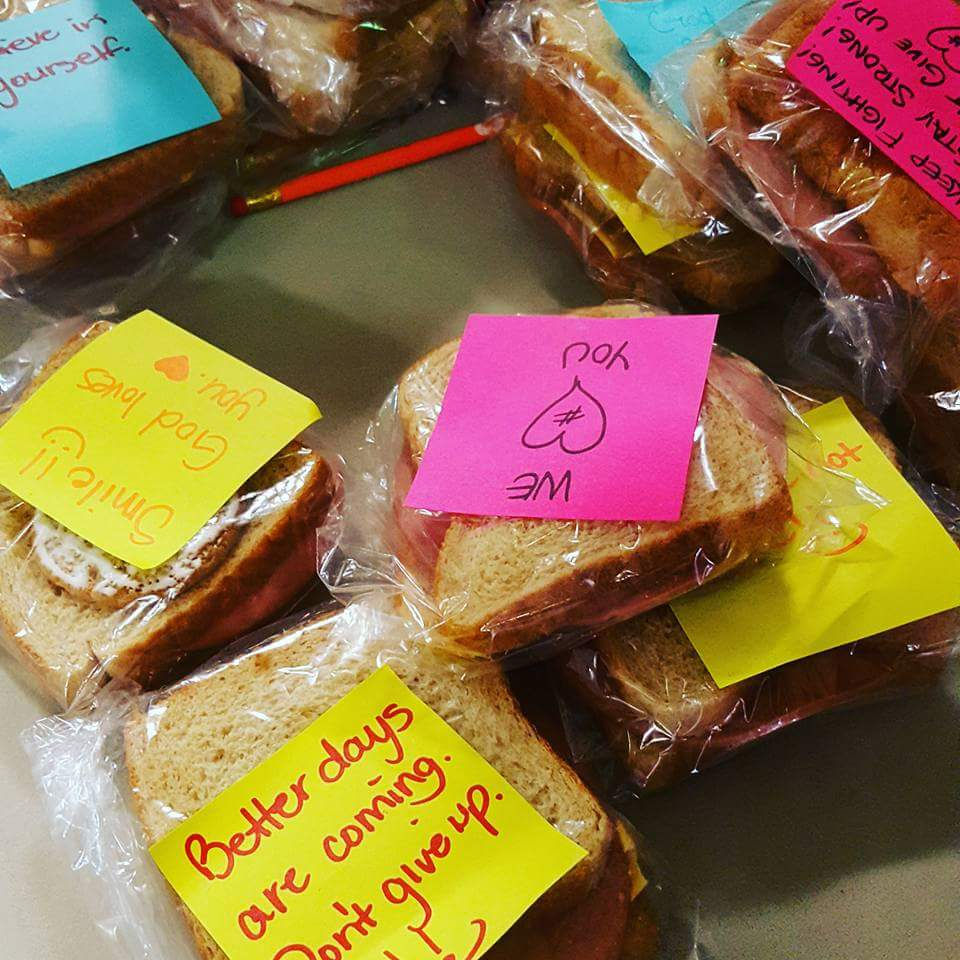 ieve in
yourself.
KEEP FIGHTING!
STAY STRONG!
GIVE UP!
Smile!!
God loves
you.
WE
#
YOU
for
Better days
are coming.
Don't give up.